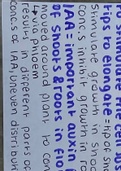 to stimulate the cell
tips to elongate =
Stimulate growth in shoo
concs inhibit growth in
IAA = important auxin in
shoots & roots in flo
moved around plant to con
+ via phloem
result in different portion
concs of IAA, uneven distribu